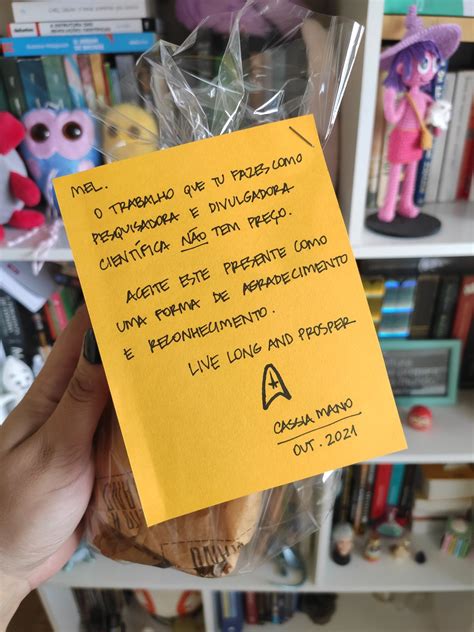 MEL.
O TRABALHO QUE TU FAZES COMO
PESQUISADORA E DIVULGADORA
CIENTÍFICA NÃO TEM PREÇO.
ACEITE ESTE PRESENTE COMO
UMA FORMA DE AGRADECIMENTO
E RECONHECIMENTO.
LIVE LONG AND PROSPER
CASSIA MANO
OUT. 2021